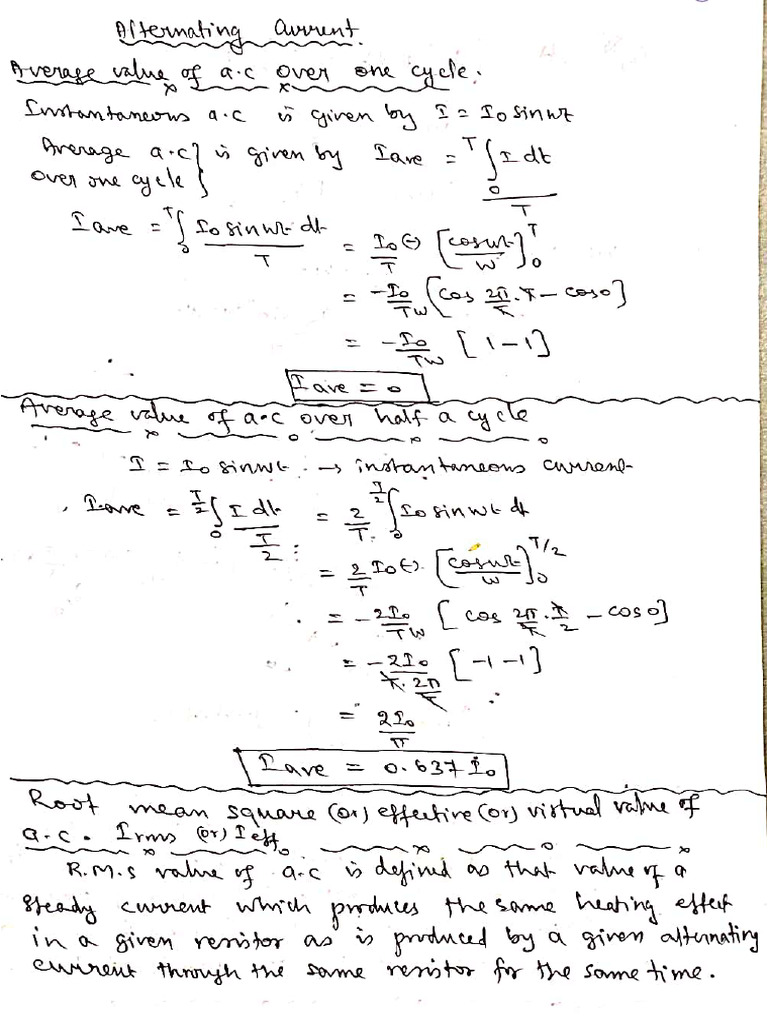 Alternating Current.
Average value of a.c over one cycle.
Instantaneous a.c is given by I = I₀ sinωt
Average a.c} is given by Iave = ∫₀ᵀ I dt / T
over one cycle}
Iave = ∫₀ᵀ I₀ sinωt dt / T = I₀/T (-) [cosωt/ω]₀ᵀ
= -I₀/Tω [cos 2π/T . T - cos0]
= -I₀/Tω [1-1]
Iave = 0
Average value of a.c over half a cycle
I = I₀ sinωt → instantaneous current
Iave = ∫₀^(T/2) I dt / (T/2) = 2/T ∫₀^(T/2) I₀ sinωt dt
= 2/T I₀(-). [cosωt/ω]₀^(T/2)
= -2I₀/Tω [cos 2π/T . T/2 - cos0]
= -2I₀/(T. 2π/T) [-1-1]
= 2I₀/π
Iave = 0.637 I₀
Root mean square (or) effective (or) virtual value of
a.c. Irms (or) Ieff.
R.M.S value of a.c is defined as that value of a
steady current which produces the same heating effect
in a given resistor as is produced by a given alternating
current through the same resistor for the same time.